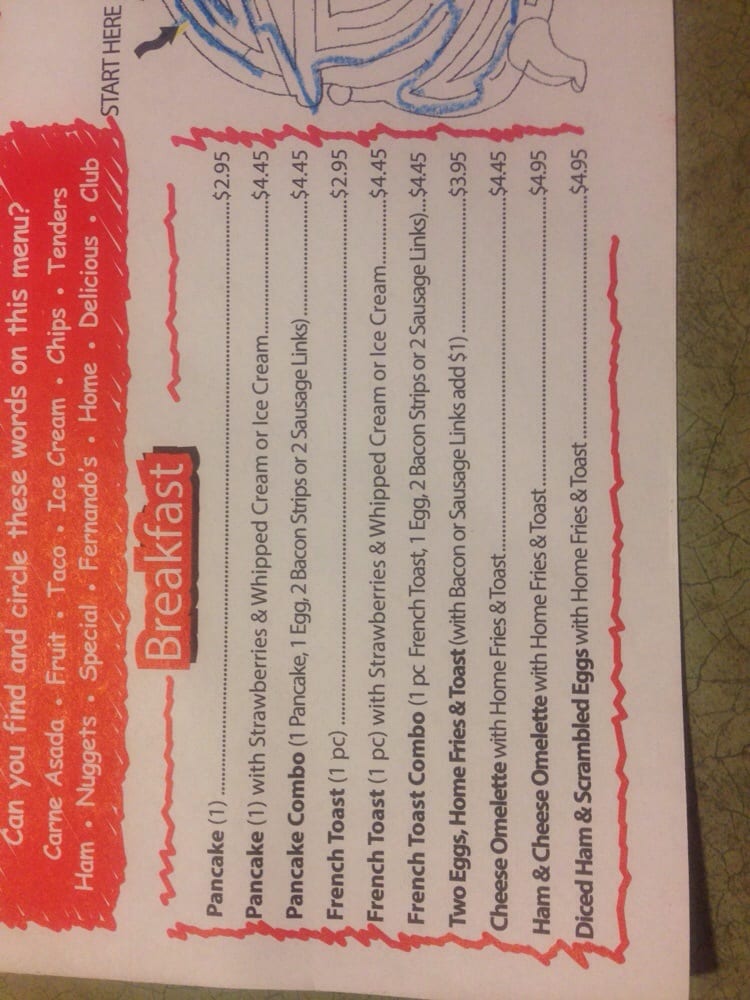 START HERE
Can you find and circle these words on this menu?
Carne Asada • Fruit • Taco • Ice Cream • Chips • Tenders
Ham • Nuggets • Special • Fernando's • Home • Delicious • Club
Breakfast
Pancake (1)..........$2.95
Pancake (1) with Strawberries & Whipped Cream or Ice Cream..........$4.45
Pancake Combo (1 Pancake, 1 Egg, 2 Bacon Strips or 2 Sausage Links)..........$4.45
French Toast (1 pc)..........$2.95
French Toast (1 pc) with Strawberries & Whipped Cream or Ice Cream..........$4.45
French Toast Combo (1 pc French Toast, 1 Egg, 2 Bacon Strips or 2 Sausage Links)...$4.45
Two Eggs, Home Fries & Toast (with Bacon or Sausage Links add $1)..........$3.95
Cheese Omelette with Home Fries & Toast..........$4.45
Ham & Cheese Omelette with Home Fries & Toast..........$4.95
Diced Ham & Scrambled Eggs with Home Fries & Toast..........$4.95